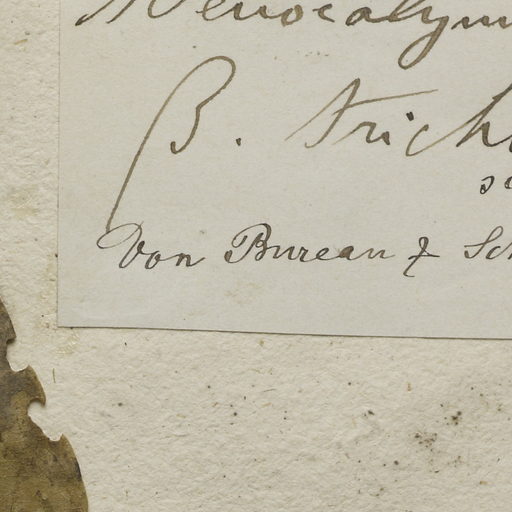 Adenocalym
β. trich
se
Von Bureau & Sch